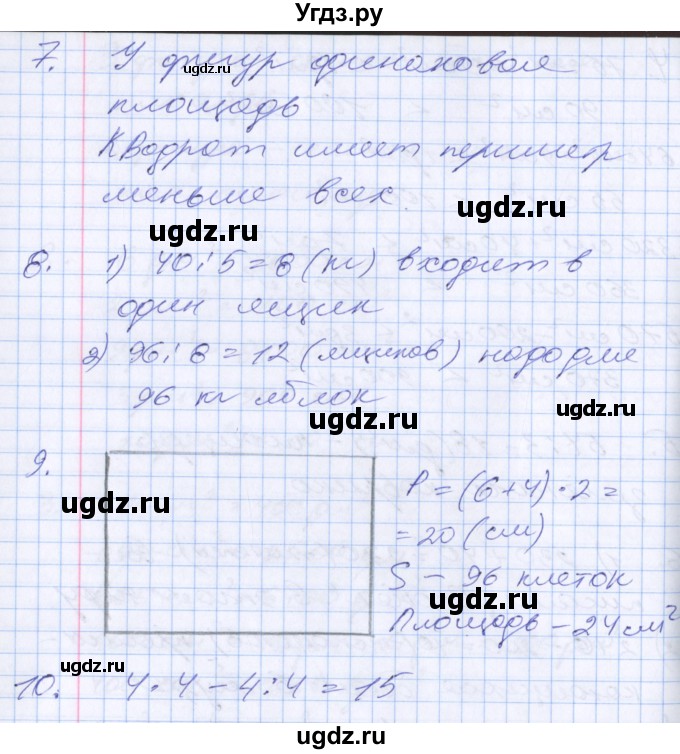 Угдз.ру
7. У фигур одинаковая
площадь
Квадрат имеет периметр
меньше всех.
8. 1) 40:5=8 (кг) входит в
один ящик
2) 96:8=12 (ящиков) надо для
96 кг яблок
9. P = (6+4)·2=
=20 (см)
S – 96 клеток
Площадь – 24 см²
10. 4·4-4:4=15
ugdz.ru
ugdz.ru
ugdz.ru
ugdz.ru
ugdz.ru
ugdz.ru
ugdz.ru
ugdz.ru
ugdz.ru
ugdz.ru
ugdz.ru
ugdz.ru
ugdz.ru